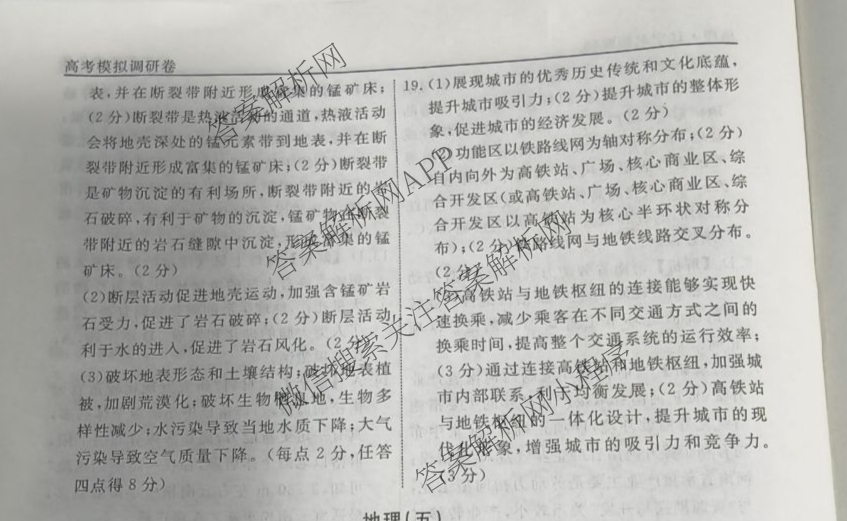 高考模拟调研卷
表,并在断裂带附近形成富集的锰矿床;
(2分)断裂带是热液活动的通道,热液活动
会将地壳深处的锰元素带到地表,并在断
裂带附近形成富集的锰矿床;(2分)断裂带
是矿物沉淀的有利场所,断裂带附近的岩
石破碎,有利于矿物的沉淀,锰矿物在断裂
带附近的岩石缝隙中沉淀,形成富集的锰
矿床。(2分)
(2)断层活动促进地壳运动,加强含锰矿岩
石受力,促进了岩石破碎;(2分)断层活动
利于水的进入,促进了岩石风化。(2分)
(3)破坏地表形态和土壤结构;破坏地表植
被,加剧荒漠化;破坏生物栖息地,生物多
样性减少;水污染导致当地水质下降;大气
污染导致空气质量下降。(每点2分,任答
四点得8分)
19.(1)展现城市的优秀历史传统和文化底蕴,
提升城市吸引力;(2分)提升城市的整体形
象,促进城市的经济发展。(2分)
功能区以铁路线网为轴对称分布;(2分)
自内向外为高铁站、广场、核心商业区、综
合开发区(或高铁站、广场、核心商业区、综
合开发区以高铁站为核心半环状对称分
布);(2分)铁路线网与地铁线路交叉分布。
(2分)
高铁站与地铁枢纽的连接能够实现快
速换乘,减少乘客在不同交通方式之间的
换乘时间,提高整个交通系统的运行效率;
(3分)通过连接高铁站和地铁枢纽,加强城
市内部联系,利于均衡发展;(2分)高铁站
与地铁枢纽的一体化设计,提升城市的现
代化形象,增强城市的吸引力和竞争力。
(3分)
地理(五)
答案解析网
答案解析网APP
微信搜索关注答案解析网
答案解析网小程序